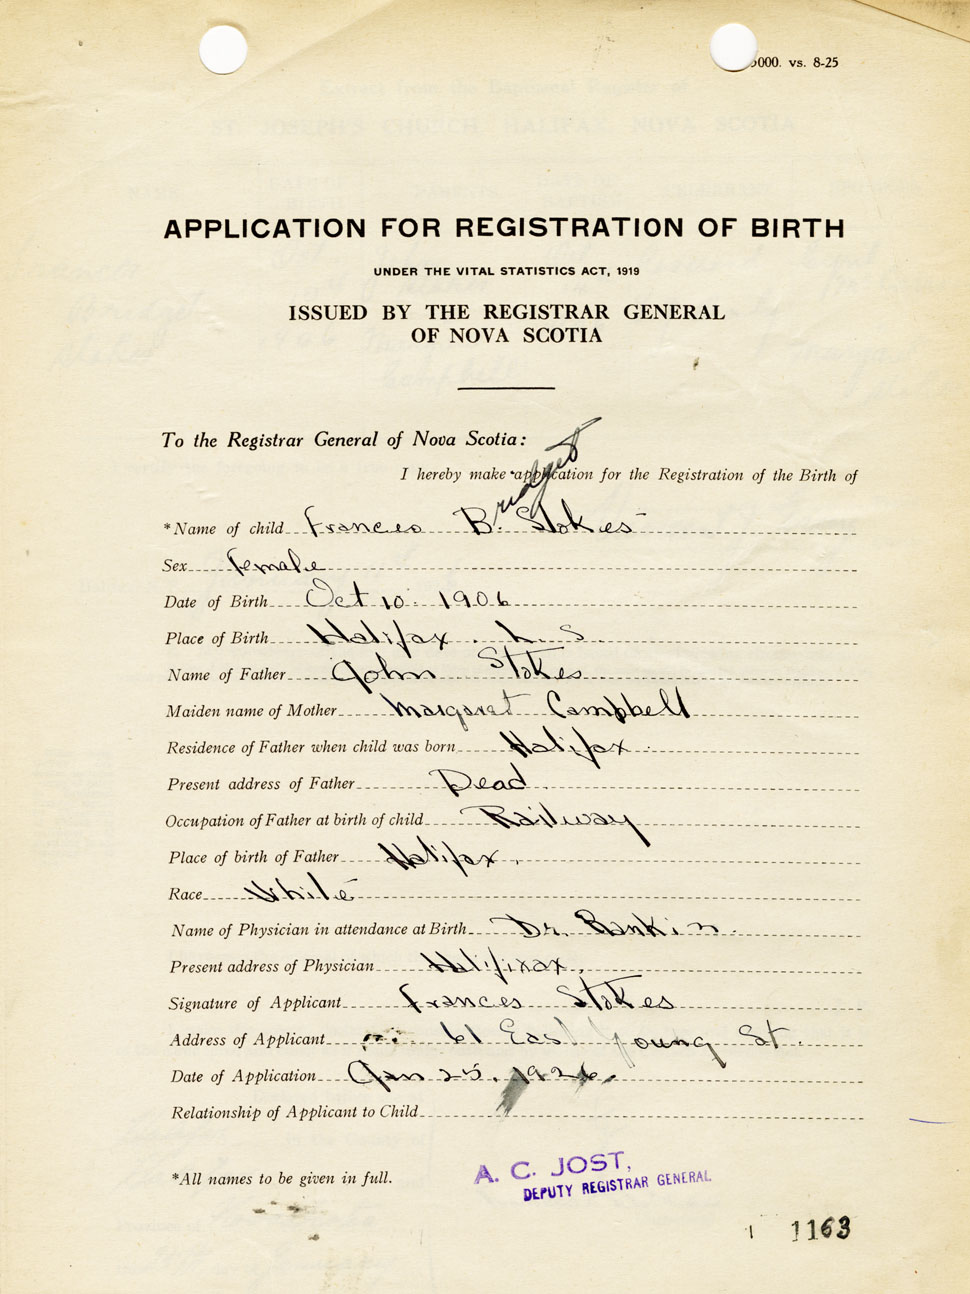 5000. vs. 8-25
APPLICATION FOR REGISTRATION OF BIRTH
UNDER THE VITAL STATISTICS ACT, 1919
ISSUED BY THE REGISTRAR GENERAL
OF NOVA SCOTIA
To the Registrar General of Nova Scotia:
I hereby make application for the Registration of the Birth of
ridget
*Name of child Frances B. Stokes
Sex female
Date of Birth Oct 10. 1906
Place of Birth Halifax. N. S.
Name of Father John Stokes
Maiden name of Mother Margaret Campbell
Residence of Father when child was born Halifax.
Present address of Father Dead.
Occupation of Father at birth of child Railway
Place of birth of Father Halifax.
Race White
Name of Physician in attendance at Birth Dr. Rankin.
Present address of Physician Halifixax.
Signature of Applicant Frances Stokes
Address of Applicant 61 East Young St.
Date of Application Jan 25, 1926.
Relationship of Applicant to Child
*All names to be given in full.
A. C. JOST,
DEPUTY REGISTRAR GENERAL
1 1163